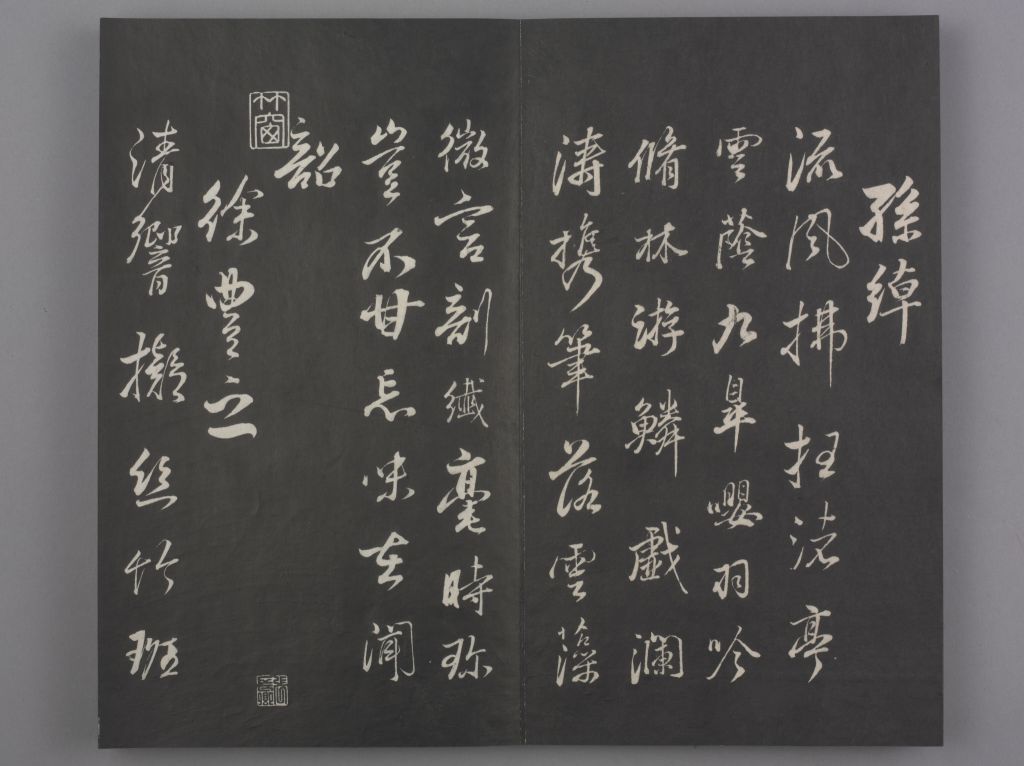 孫綽
流風拂枉渚亭
雲蔭九皋嚶羽吟
脩林游鱗戲瀾
濤携筆落雲藻
微言剖纖毫時珎
豈不甘忘味在聞
韶
徐豊之
清響擬絲竹班